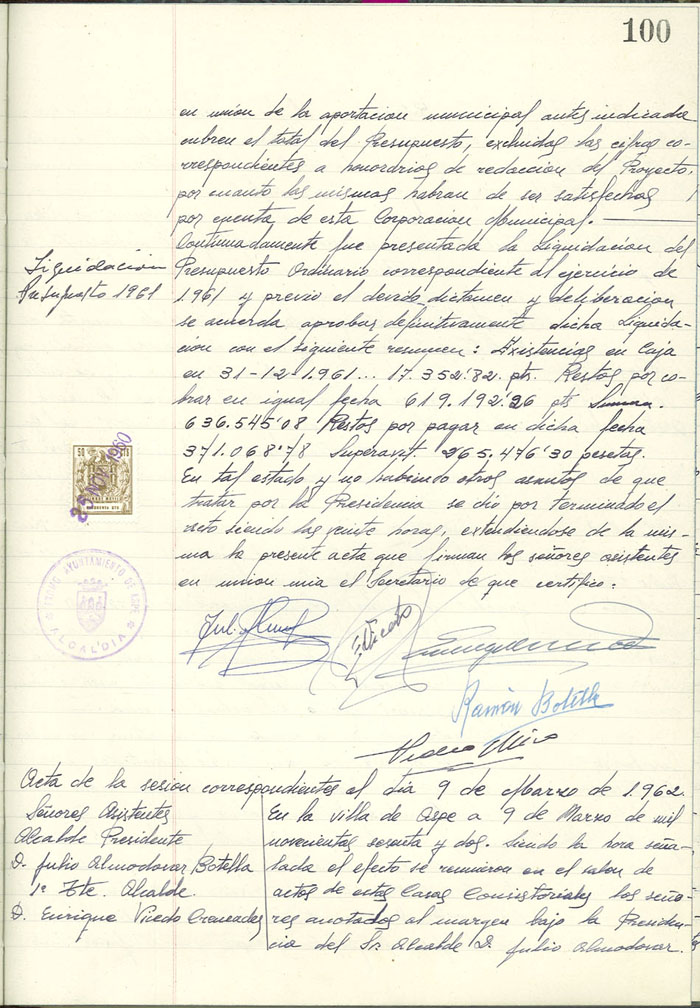 100
en union de la aportacion municipal antes indicada
cubren el total del Presupuesto, excluidas las cifras co-
rrespondientes a honorarios de redaccion del Proyecto,
por cuanto las mismas habran de ser satisfechas
por cuenta de esta Corporacion Municipal.
Liquidacion
Presupusto 1961
Continuadamente fue presentada la Liquidacion del
Presupuesto Ordinario correspondiente al ejercicio de
1.961 y previo el devido dictamen y deliberacion
se acuerda aprobar definitivamente dicha Liquida-
cion con el siguiente resumen: Existencias en Caja
en 31-12-1.961... 17.352'82. pts. Restos por co-
brar en igual fecha 619.192'26 pts Suman.
636.545'08 Restos por pagar en dicha fecha
371.068'78 Superavit. 265.476'30 pesetas.
En tal estado y no habiendo otros asuntos de que
tratar por la Presidencia se dio por terminado el
acto siendo las veinte horas, extendiendose de la mis-
ma la presente acta que firman los señores asistentes
en union mia el Secretario de que certifico:
50 CTS
25 NOV 1960
AYUNTAMIENTO DE ASPE
ALCALDIA
Jul.
E. Vicedo
Ramón Botella
Acta de la sesion correspondientes al dia 9 de Marzo de 1.962
Señores Asistentes
Alcalde Presidente
D. Julio Almodovar Botella
1º Tte. Alcalde
D. Enrique Vicedo Cremades
En la villa de Aspe a 9 de Marzo de mil
novecientos sesenta y dos. Siendo la hora seña-
lada el efecto se reunieron en el salon de
actos de estas Casas Consistoriales los seño-
res anotados al margen bajo la Presiden-
cia del Sr. Alcalde D. Julio Almodovar.